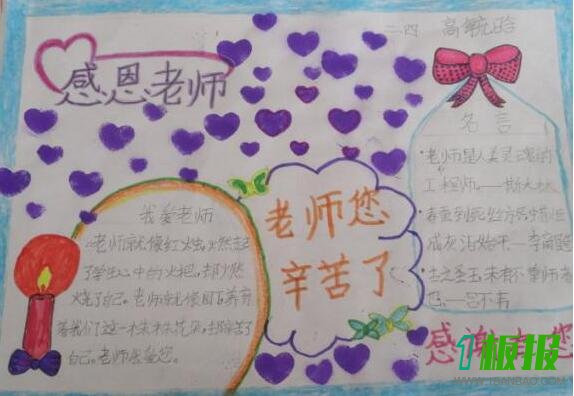 二四 高毓晗
感恩老师
名言
老师是人类灵魂的
工程师。——斯大林
春蚕到死丝方尽蜡炬
成灰泪始干——李商隐
古之圣王,未有不尊师者
也——吕不韦
我爱老师
老师就像红火虫,燃起了
了学生心中的火把,却
烧了自己。老师就像园丁养育
着我们这一朵朵花朵,却辛苦了
自己。老师我爱您。
老师您
辛苦了
感谢有您
1板报
WWW.1BANBAO.COM